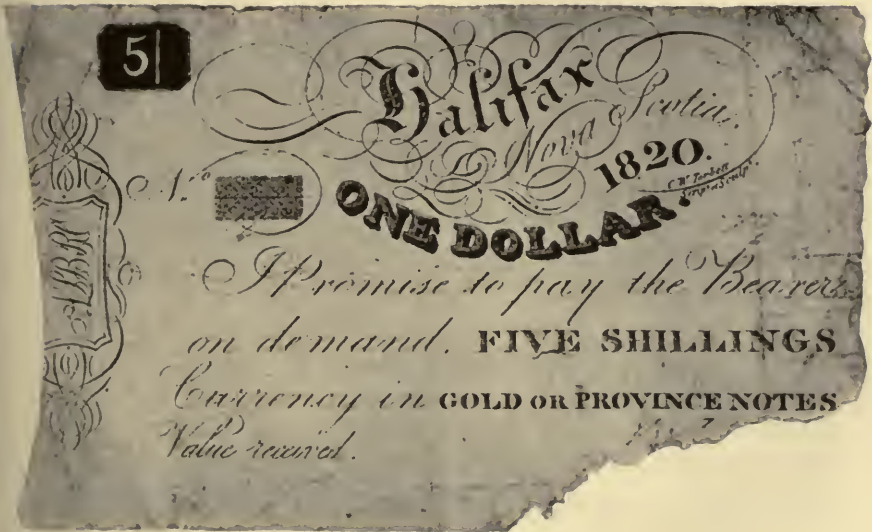 5|
Halifax
Nova Scotia,
1820.
No.
ONE DOLLAR.
I Promise to pay the Bearer
on demand. FIVE SHILLINGS
Currency in GOLD OR PROVINCE NOTES
Value received.